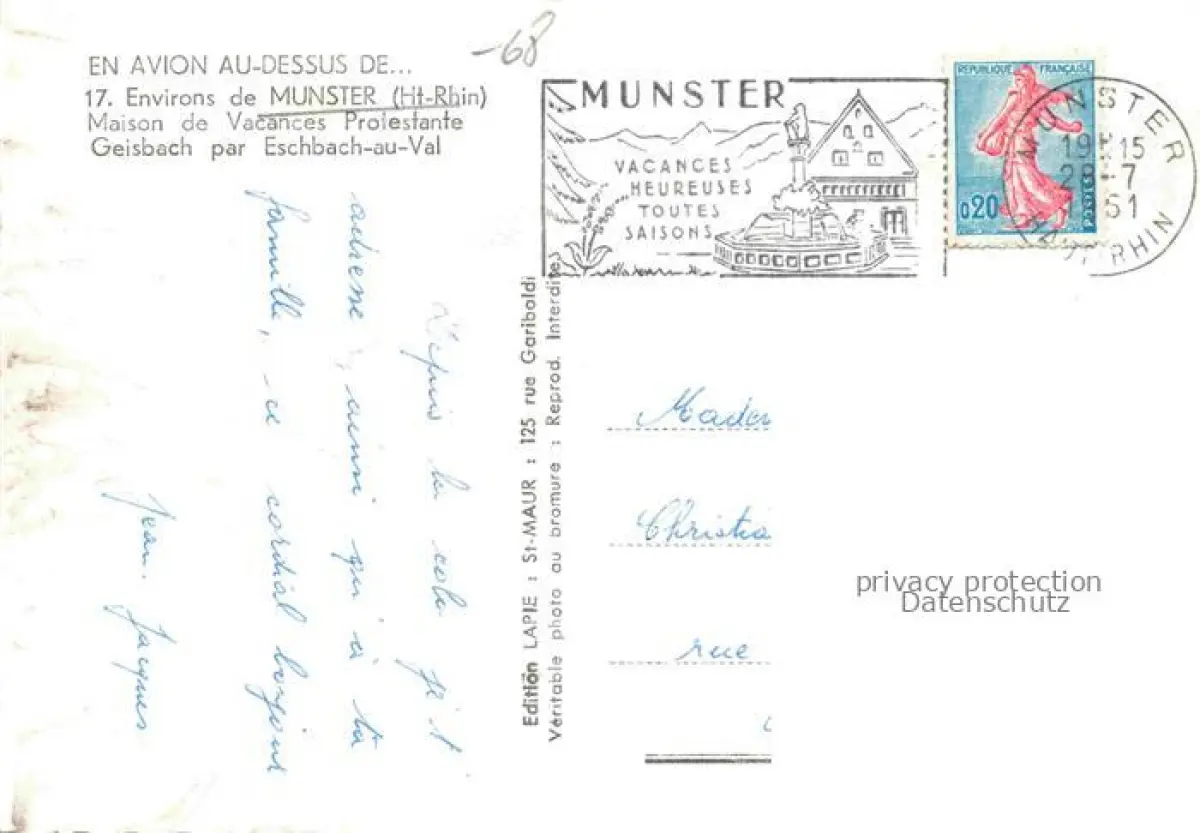 -68
EN AVION AU-DESSUS DE...
17. Environs de MUNSTER (Ht-Rhin)
Maison de Vacances Protestante
Geisbach par Eschbach-au-Val
Depuis la colo je t'
adresse, ainsi qu'à ta
famille, ce cordial bonjour
Jean-Jacques
Edition LAPIE : St-MAUR : 125 rue Gariboldi
Véritable photo au bromure : Reprod. Interdite
MUNSTER
VACANCES
HEUREUSES
TOUTES
SAISONS
REPUBLIQUE FRANÇAISE
0,20
POSTES
MUNSTER
19H15
28-7
1961
HAUT-RHIN
Mader
Christia
rue
privacy protection
Datenschutz